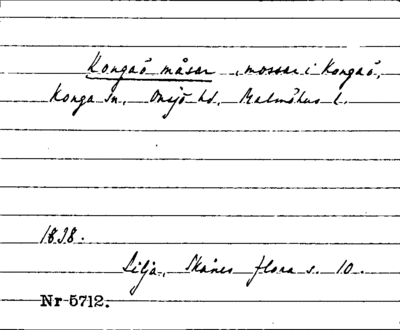 Kongaö måsar, mossar i Kongaö,
Konga sn, Onsjö hd, Malmöhus l.
1838.
Lilja, Skånes flora s. 10.
Nr 5712.